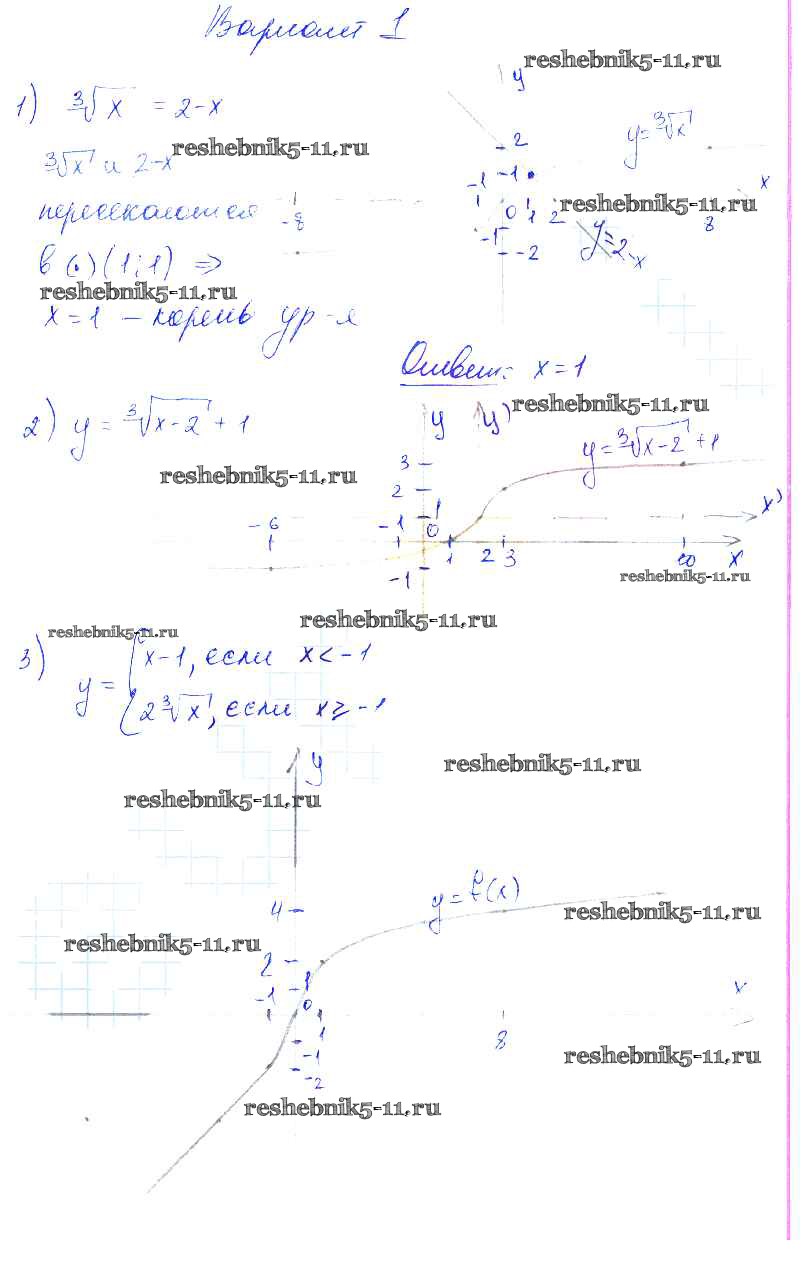 Вариант 1
reshebnik5-11.ru
1) ∛x = 2-x
y
∛x и 2-x
reshebnik5-11.ru
2
y=∛x
-1 -1
x
пересекаются
-8
0 1 2
reshebnik5-11.ru
8
-1
-2
y=2-x
в (.) (1;1) ⇒
reshebnik5-11.ru
x=1 – корень ур-я
Ответ: x=1
reshebnik5-11.ru
2) y = ∛x-2 + 1
y y'
y=∛x-2 +1
3
reshebnik5-11.ru
2
-6 -1 1
x'
0
1 2 3 10 x
-1
reshebnik5-11.ru
reshebnik5-11.ru
reshebnik5-11.ru
3) y = { x-1, если x<-1
2∛x, если x≥-1
y
reshebnik5-11.ru
reshebnik5-11.ru
4
y=f(x)
reshebnik5-11.ru
reshebnik5-11.ru
2
-1 1
0
x
1
8
-1
-2
reshebnik5-11.ru
reshebnik5-11.ru